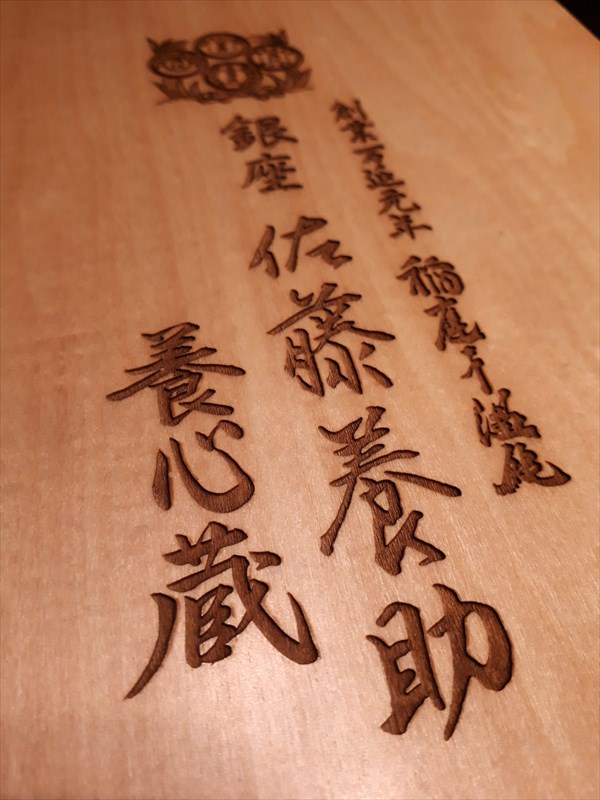 創業万延元年 稲庭干温飩
銀座 佐藤養助
養心蔵